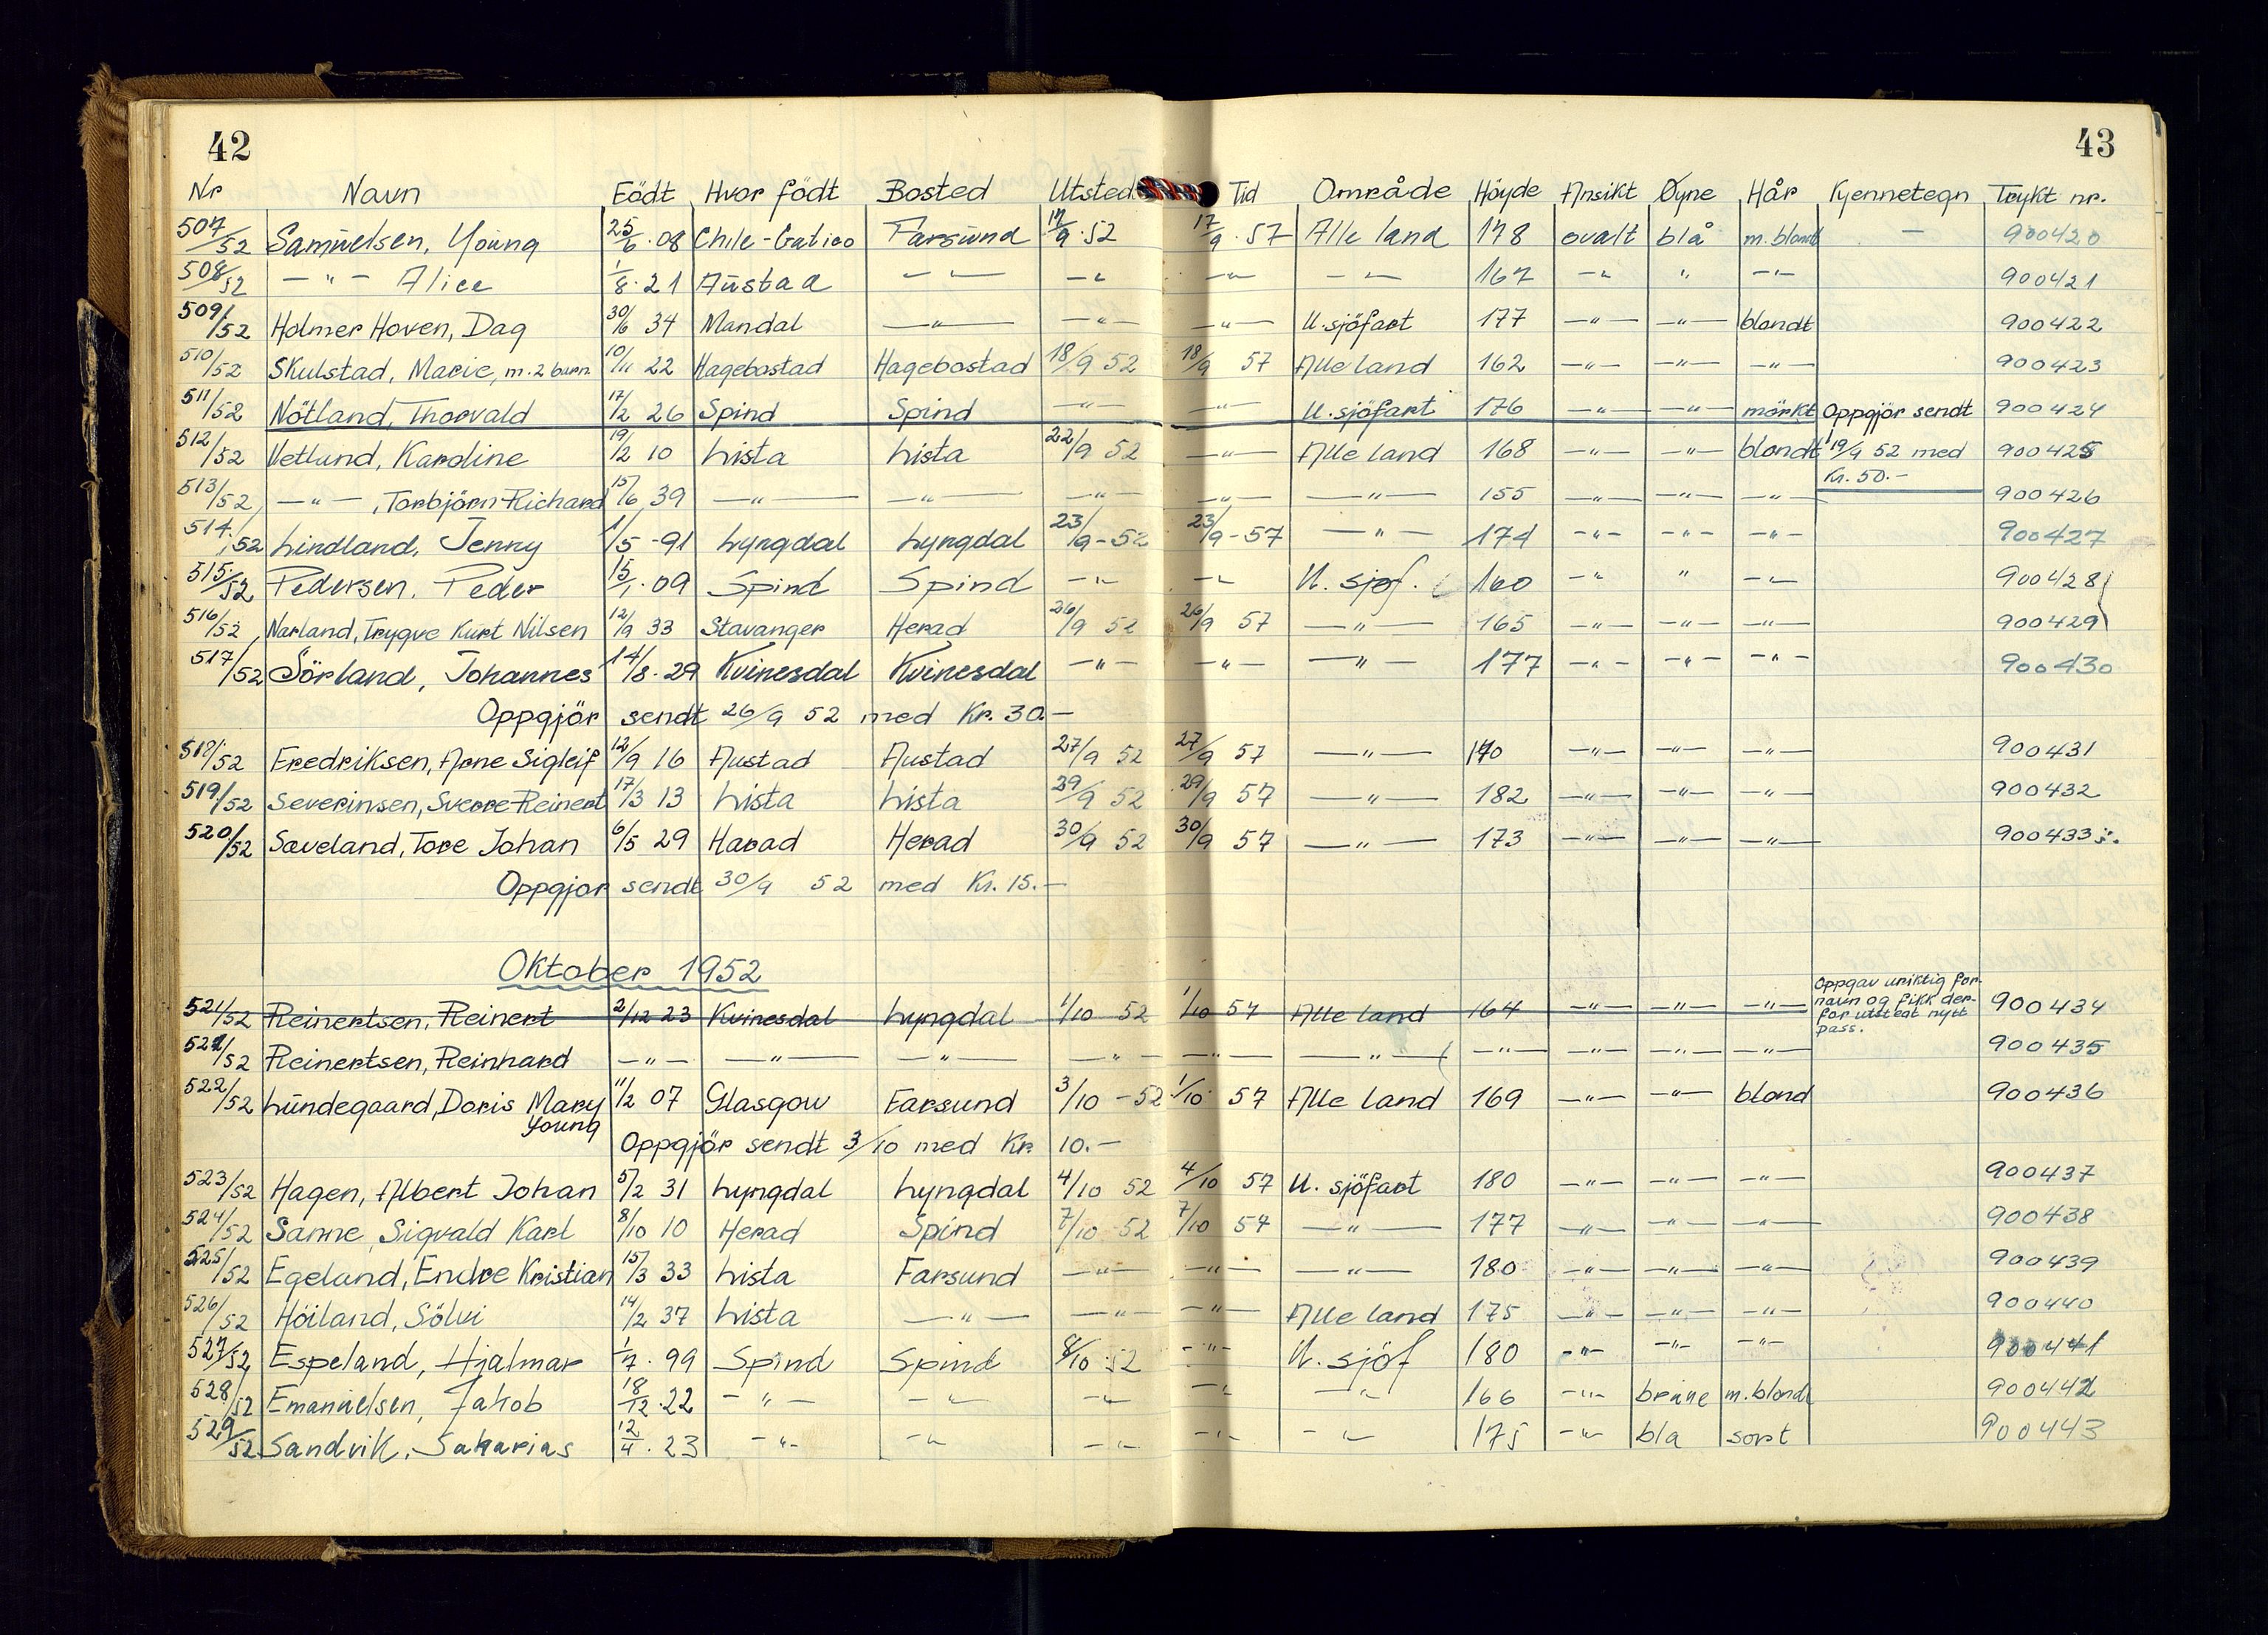 42
43
Nr Navn Födt Hvor födt Bosted Utsted Tid Område Höyde Ansikt Öyne Hår Kjennetegn Trykt nr.
507/52 Samuelsen, Young 25/6.08 Chile-Gatico Farsund 17/9.52 17/9.57 Alle land 178 ovalt blå m. blondt — 900420
508/52 — " — Alice 1/8.21 Austad — " — — " — — " — — " — 167 — " — " — " — 900421
509/52 Holmer Hoven, Dag 30/6 34 Mandal — " — — " — — " — U. sjöfart 177 — " — — " — blondt 900422
510/52 Skulstad, Marie, m. 2 barn 10/11 22 Hagebostad Hagebostad 18/9 52 18/9 57 Alle land 162 — " — — " — — " — 900423
511/52 Nötland, Thorvald 17/2 26 Spind Spind — " — — " — U. sjöfart 176 — " — — " — mörkt Oppgjör sendt 900424
512/52 Vetlund, Karoline 19/2 10 Lista Lista 22/9 52 — " — Alle land 168 — " — — " — blondt 19/9 52 med 900425
Kr. 50.-
513/52 — " —, Torbjörn Richard 15/6 39 — " — — " — — " — — " — — " — 155 — " — — " — — " — 900426
514/52 Lindland, Jenny 1/5 -91 Lyngdal Lyngdal 23/9-52 23/9-57 — " — 174 — " — — " — — " — 900427
515/52 Pedersen, Peder 15/1.09 Spind Spind — " — — " — U. sjøf. 160 — " — " — " — 900428
516/52 Narland, Trygve Kurt Nilsen 12/9 33 Stavanger Herad 26/9 52 26/9 57 — " — 165 — " — — " — — " — 900429
517/52 Sörland, Johannes 14/8.29 Kvinesdal Kvinesdal — " — — " — — " — 177 — " — — " — — " — 900430
Oppgjör sendt 26/9 52 med Kr. 30.—
518/52 Fredriksen, Arne Sigleif 12/9 16 Austad Austad 27/9 52 27/9 57 — " — 170 — " — — " — — " — 900431
519/52 Severinsen, Sverre Reinert 17/3 13 Lista Lista 29/9 52 29/9 57 — " — 182 — " — — " — — " — 900432
520/52 Sæveland, Tore Johan 6/5 29 Harad Herad 30/9 52 30/9 57 — " — 173 — " — — " — — " — 900433
Oppgjør sendt 30/9 52 med Kr. 15.—
Oktober 1952
521/52 Reinertsen, Reinert 2/12 23 Kvinesdal Lyngdal 1/10 52 1/10 57 Alle land 164 — " — — " — — " — Oppgav uriktig for- navn og fikk der- for utstedt nytt pass. 900434
521/52 Reinertsen, Reinhard — " — — " — — " — — " — — " — — " — — " — — " — — " — — " — 900435
522/52 Lundegaard, Doris Mary Young 11/2 07 Glasgow Farsund 3/10 -52 1/10 57 Alle land 169 — " — — " — blond 900436
Oppgjör sendt 3/10 med Kr. 10.—
523/52 Hagen, Albert Johan 5/2 31 Lyngdal Lyngdal 4/10 52 4/10 57 U. sjöfart 180 — " — — " — — " — 900437
524/52 Sanne, Sigvald Karl 8/10 10 Herad Spind 7/10 52 7/10 57 — " — 177 — " — — " — — " — 900438
525/52 Egeland, Endre Kristian 15/3 33 Lista Farsund — " — — " — — " — 180 — " — — " — — " — 900439
526/52 Höiland, Sölvi 14/2 37 Lista — " — — " — — " — Alle land 175 — " — — " — — " — 900440
527/52 Espeland, Hjalmar 1/7.99 Spind Spind 8/10.52 — " — U. sjöf 180 — " — — " — — " — 900441
528/52 Emanuelsen, Jakob 18/12.22 — " — — " — — " — — " — — " — 166 — " — brune m. blond 900442
529/52 Sandvik, Sakarias 12/4.23 — " — — " — — " — — " — — " — 175 — " — bla sort 900443